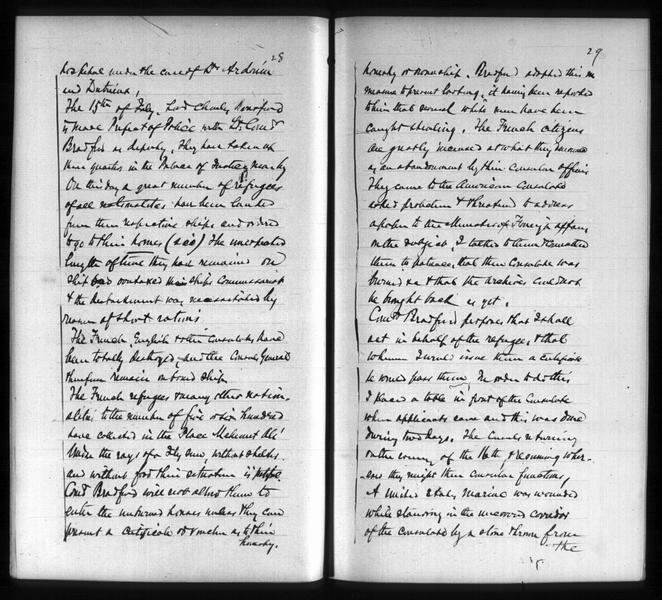 28
hospital under the care of Dr Ardouin
and Dutrieux,
The 15th of July. Lord Charles Beresford
is made Prefect of Police with Lt. Comdr
Bradford as deputy. They have taken up
their quarters in the Palace of Justice nearby
On this day a great number of refugees
of all nationalities have been landed
from their respective ships and ordered
to go to their homes (sic) The unexpected
length of time they had remained on
ship had overtaxed the ships Commissariat
& the debarkment was necessitated by
reason of short rations.
The French, English & other Consulates have
been totally destroyed, and the Consuls General
therefore remain on board ship.
The French refugees & many other nation-
alities to the number of five or six hundred
have collected in the Place Mehemet Ali
Under the rays of a July sun, without shelter
and without food their situation is
Comdr Bradford will not allow them to
enter the unburned houses unless they can
present a certificate or voucher as to their
honesty.
29
honesty or ownership. Bradford adopted this
measure to prevent looting, it having been reported
to him that several white men have been
caught stealing. The French citizens
are greatly incensed at what they
as an abandonment by their Consular officers
They came to the American Consulate
asked protection & threatened to address
a protest to the Minister of Foreign affairs
on the subject. I talked to them & counselled
them to patience, that their Consulate was
burned and that the archives could not
be brought back as yet.
Comdr Bradford proposes that I shall
act in behalf of the refugees & that
whomever I would issue them a certificate
he would pass them. In order to do this
I placed a table in front of the Consulate
when applicants came and this was done
during two days. The Consuls returning
on the evening of the 16th & resuming wher-
ever they might their Consular functions,
A United States marine was wounded
while standing in the corridor
of the Consulate by a stone thrown from
the